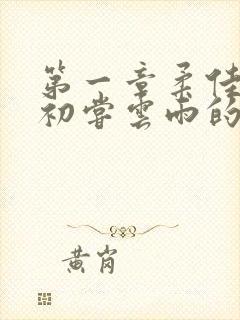 第一章柔佳
初尝云雨的
黄岗